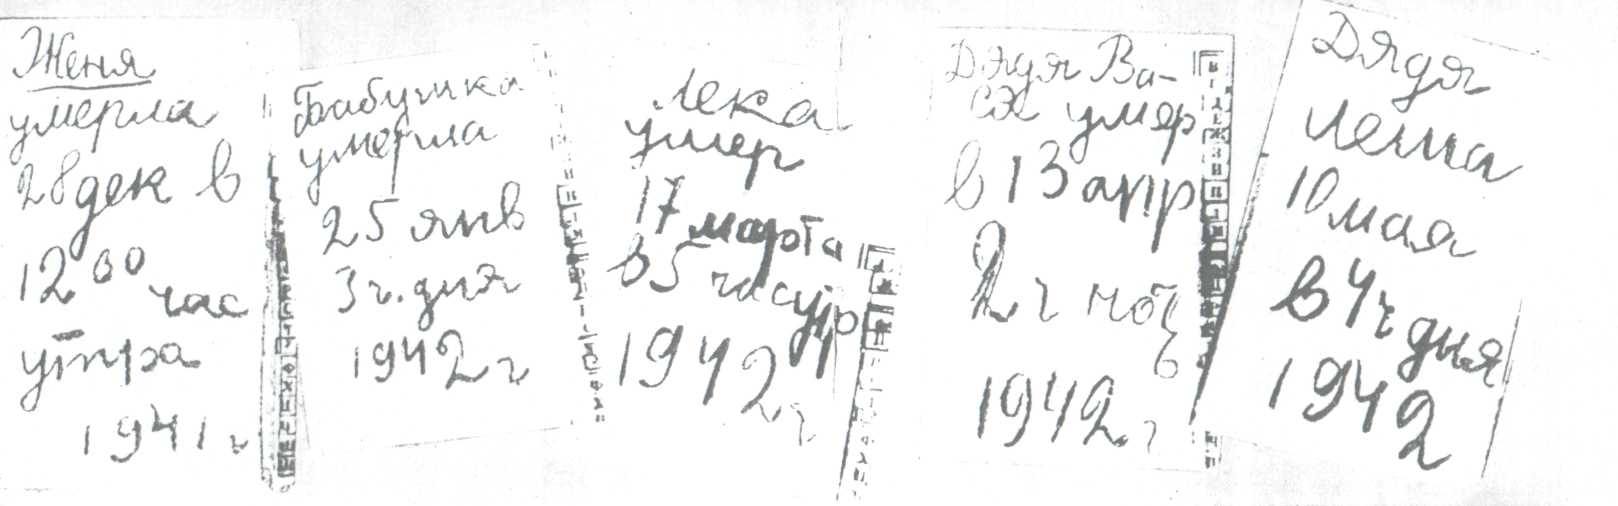 Женя
умерла
28 дек в
12 00 час
утра
1941 г
Бабушка
умерла
25 янв
3 ч. дня
1942 г
Лека
умер
17 марта
в 5 час утр
1942 г
Дядя Ва-
ся умер
в 13 апр
2 ч ночь
1942 г
Дядя
Леша
10 мая
в 4 ч дня
1942